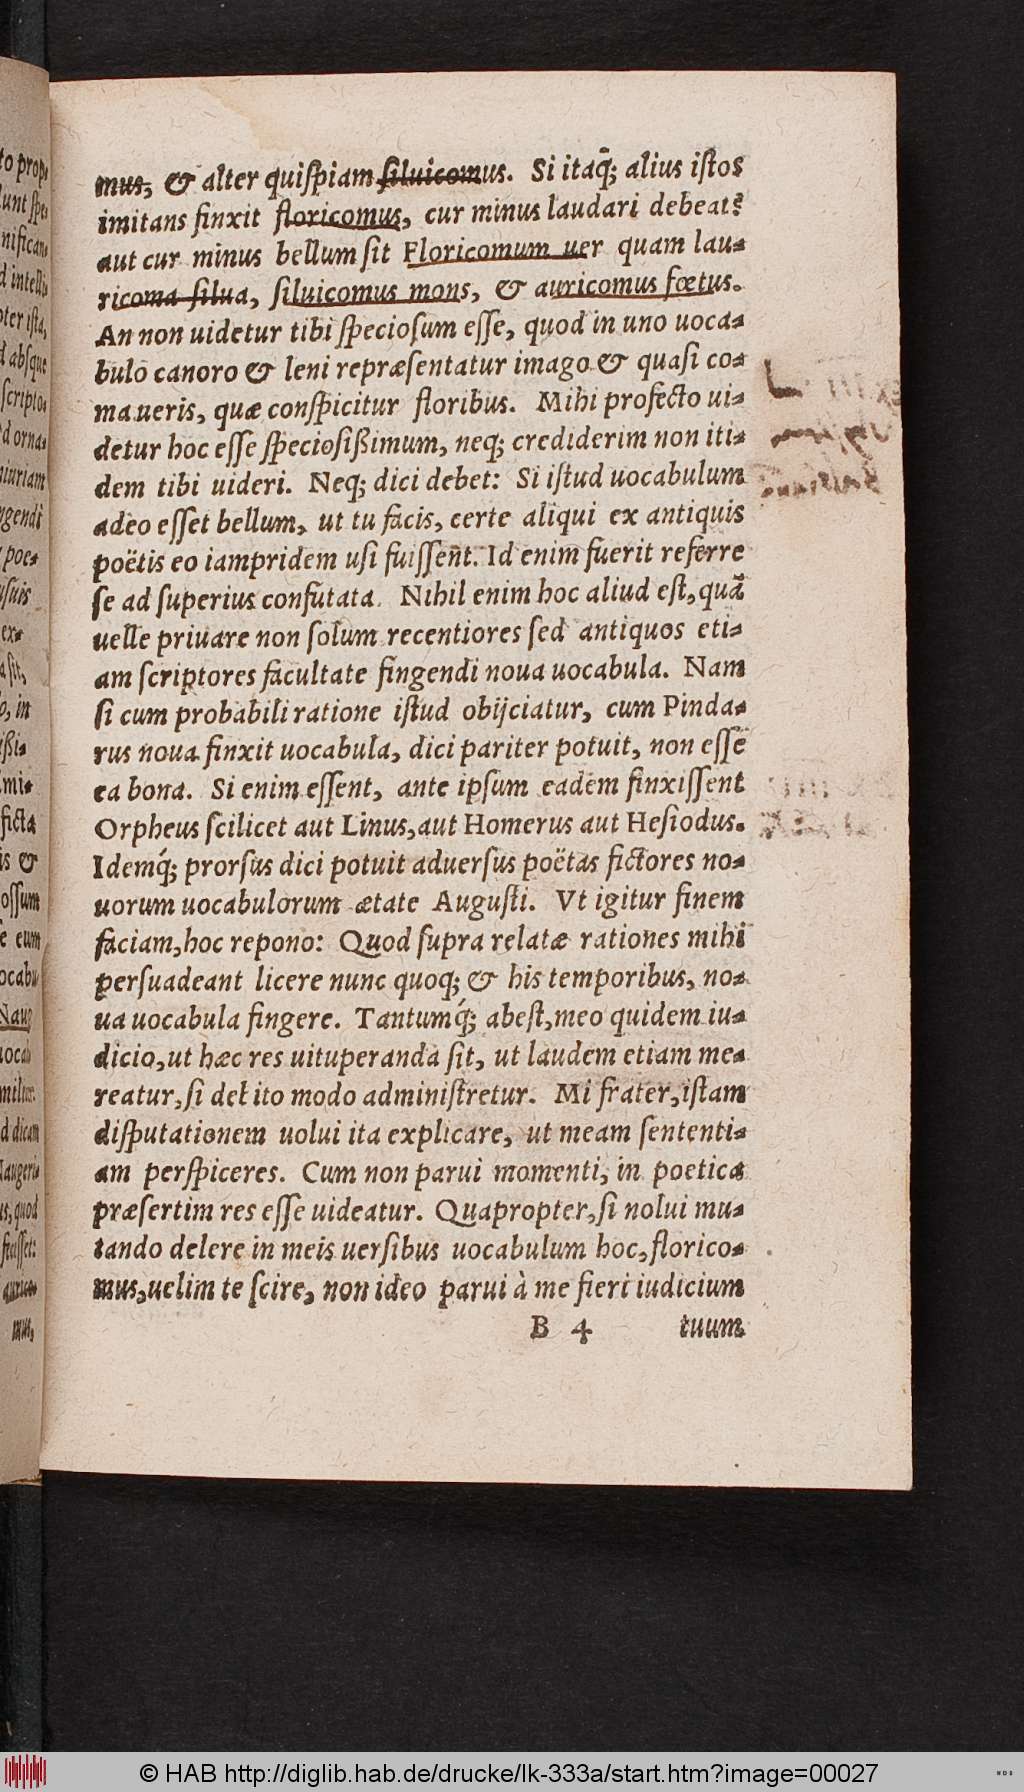 mus, & alter quiſpiam ſiluicomus. Si itaq̃; alius iſtos
imitans finxit floricomus, cur minus laudari debeat?
aut cur minus bellum ſit Floricomum uer quam lau-
ricoma ſilua, ſiluicomus mons, & auricomus fœtus.
An non uidetur tibi ſpecioſum eſſe, quod in uno uoca-
bulo canoro & leni repræſentatur imago & quaſi co-
ma ueris, quæ conſpicitur floribus. Mihi profecto ui-
detur hoc eſſe ſpecioſißimum, neq; crediderim non iti-
dem tibi uideri. Neq; dici debet: Si iſtud uocabulum
adeo eſſet bellum, ut tu facis, certe aliqui ex antiquis
poëtis eo iampridem uſi fuiſſent. Id enim fuerit referre
ſe ad ſuperius confutata. Nihil enim hoc aliud eſt, quã
uelle priuare non ſolum recentiores ſed antiquos eti-
am ſcriptores facultate fingendi noua uocabula. Nam
ſi cum probabili ratione iſtud obijciatur, cum Pinda-
rus noua finxit uocabula, dici pariter potuit, non eſſe
ea bona. Si enim eſſent, ante ipſum eadem finxiſſent
Orpheus ſcilicet aut Linus, aut Homerus aut Heſiodus.
Idemq́; prorſus dici potuit aduerſus poëtas fictores no-
uorum uocabulorum ætate Auguſti. Vt igitur finem
faciam, hoc repono: Quod ſupra relatæ rationes mihi
perſuadeant licere nunc quoq; & his temporibus, no-
ua uocabula fingere. Tantumq́; abeſt, meo quidem iu-
dicio, ut hæc res uituperanda ſit, ut laudem etiam me-
reatur, ſi debito modo adminiſtretur. Mi frater, iſtam
diſputationem uolui ita explicare, ut meam ſententi-
am perſpiceres. Cum non parui momenti, in poetica
præſertim res eſſe uideatur. Quapropter, ſi nolui mu-
tando delere in meis uerſibus uocabulum hoc, florico-
mus, uelim te ſcire, non ideo parui à me fieri iudicium
B 4 tuum
© HAB http://diglib.hab.de/drucke/lk-333a/start.htm?image=00027